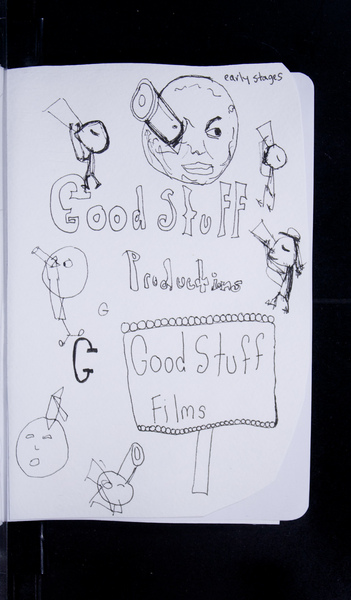 early stages
Good Stuff
Productions
G
G
Good Stuff
Films